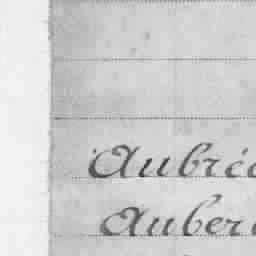 Aubrée
Auber